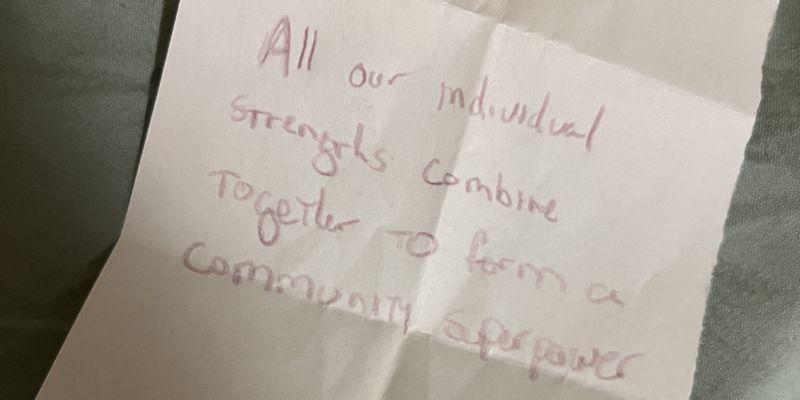 All our individual
strengths combine
together to form a
community superpower